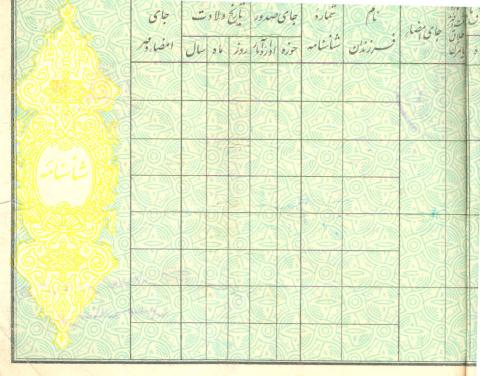 نام
فرزندان
شماره
شناسنامه
جای صدور
حوزه
اداره آمار
تاریخ ولادت
روز
ماه
سال
جای
امضاء و مهر
جای امضاء
شناسنامه